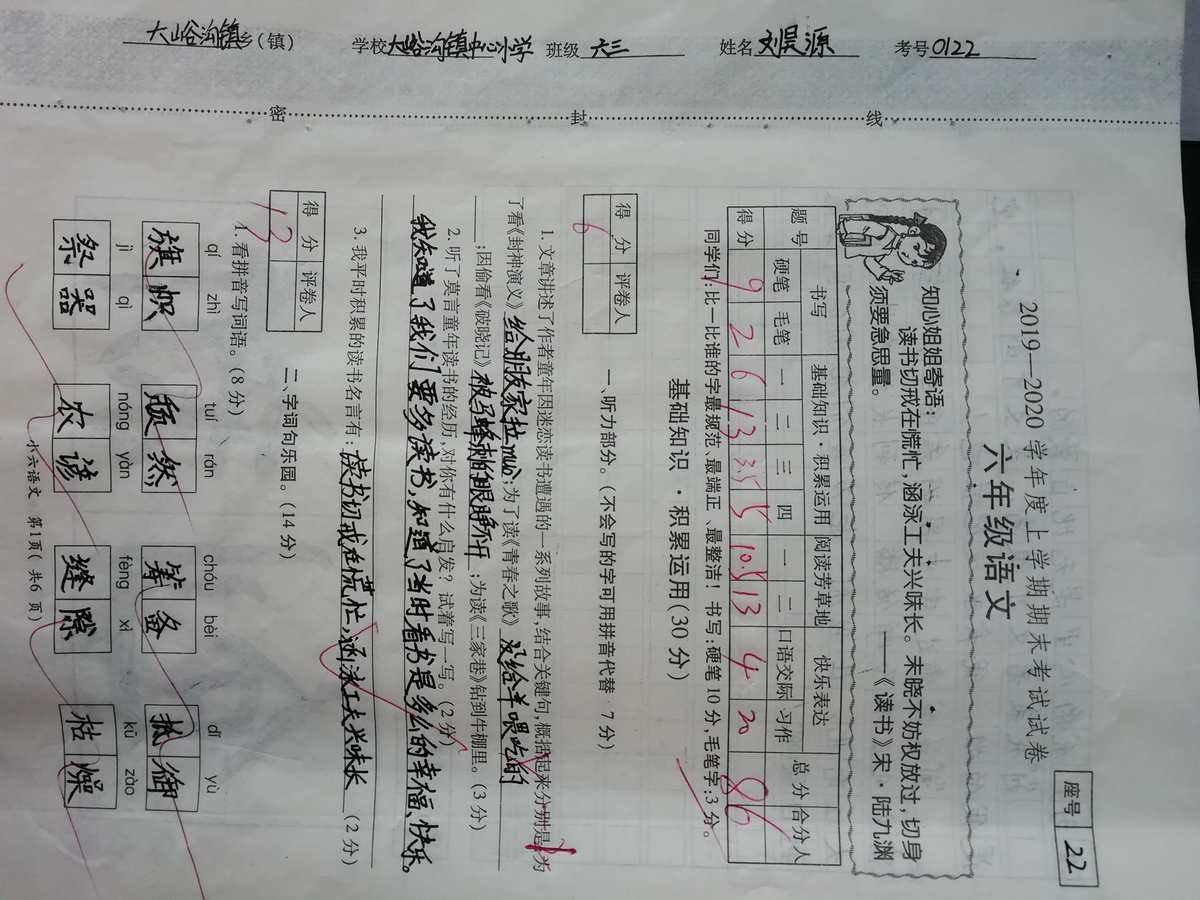 大峪沟镇乡(镇) 学校大峪沟镇中心小学 班级六三 姓名刘昊源 考号0122
密 封 线
座号 22
2019—2020 学年度上学期期末考试试卷
六年级语文
知心姐姐寄语:
读书切戒在慌忙,涵泳工夫兴味长。未晓不妨权放过,切身
须要急思量。 ——《读书》宋·陆九渊
题号 书写 基础知识·积累运用 阅读芳草地 快乐表达 总分 合分人
硬笔 毛笔 一 二 三 四 一 二 口语交际 习作
得分 9 2 6 13 3.5 5 10.5 13 4 20 86
同学们:比一比谁的字最规范、最端正、最整洁!书写:硬笔 10 分,毛笔字:3 分。
基础知识·积累运用(30 分)
得分 评卷人
6
一、听力部分。(不会写的字可用拼音代替 7 分)
1. 文章讲述了作者童年因迷恋读书遭遇的一系列故事,结合关键句,概括起来分别是:为
了看《封神演义》给朋友家拉mò;为了读《青春之歌》没给羊喂吃的
;因偷看《破晓记》被马蜂刺的眼睁不开;为读《三家巷》钻到牛棚里。(3 分)
2. 听了莫言童年读书的经历,对你有什么启发?试着写一写。(2 分)
我知道了我们要多读书,知道了当时看书是多么的幸福、快乐。
3. 我平时积累的读书名言有:读书切戒在慌忙,涵泳工夫兴味长(2 分)
得分 评卷人
13
二、字词句乐园。(14 分)
1. 看拼音写词语。(8 分)
qí zhì tuí rán chóu bèi dǐ yù
旗帜 颓然 筹备 抵御
jì qì nóng yàn fèng xì kū zào
祭器 农谚 缝隙 枯燥
小六语文 第1页(共6页)